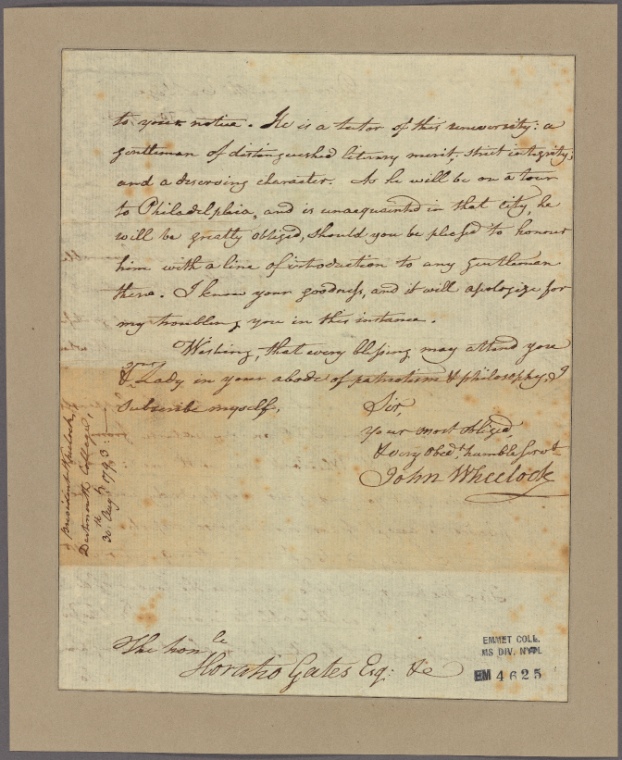 to your notice. He is a tutor of this university: a
gentleman of distinguished literary merit, strict integrity,
and a deserving character. As he will be on a tour
to Philadelphia, and is unacquainted in that city, he
will be greatly obliged, should you be pleased to honour
him with a line of introduction to any gentleman
there. I know your goodness, and it will apologize for
my troubling you in this instance.
Wishing, that every blessing may attend you
& your Lady in your abode of patriotism & philosophy, I
subscribe myself,
Sir,
your most obliged,
& very obedt. humble servt
John Wheelock
President Wheelock,
Dartmouth College,
30th Augt. 1793.
The honle
Horatio Gates Esq: &c
EMMET COLL.
MS DIV. NYPL
EM 4625